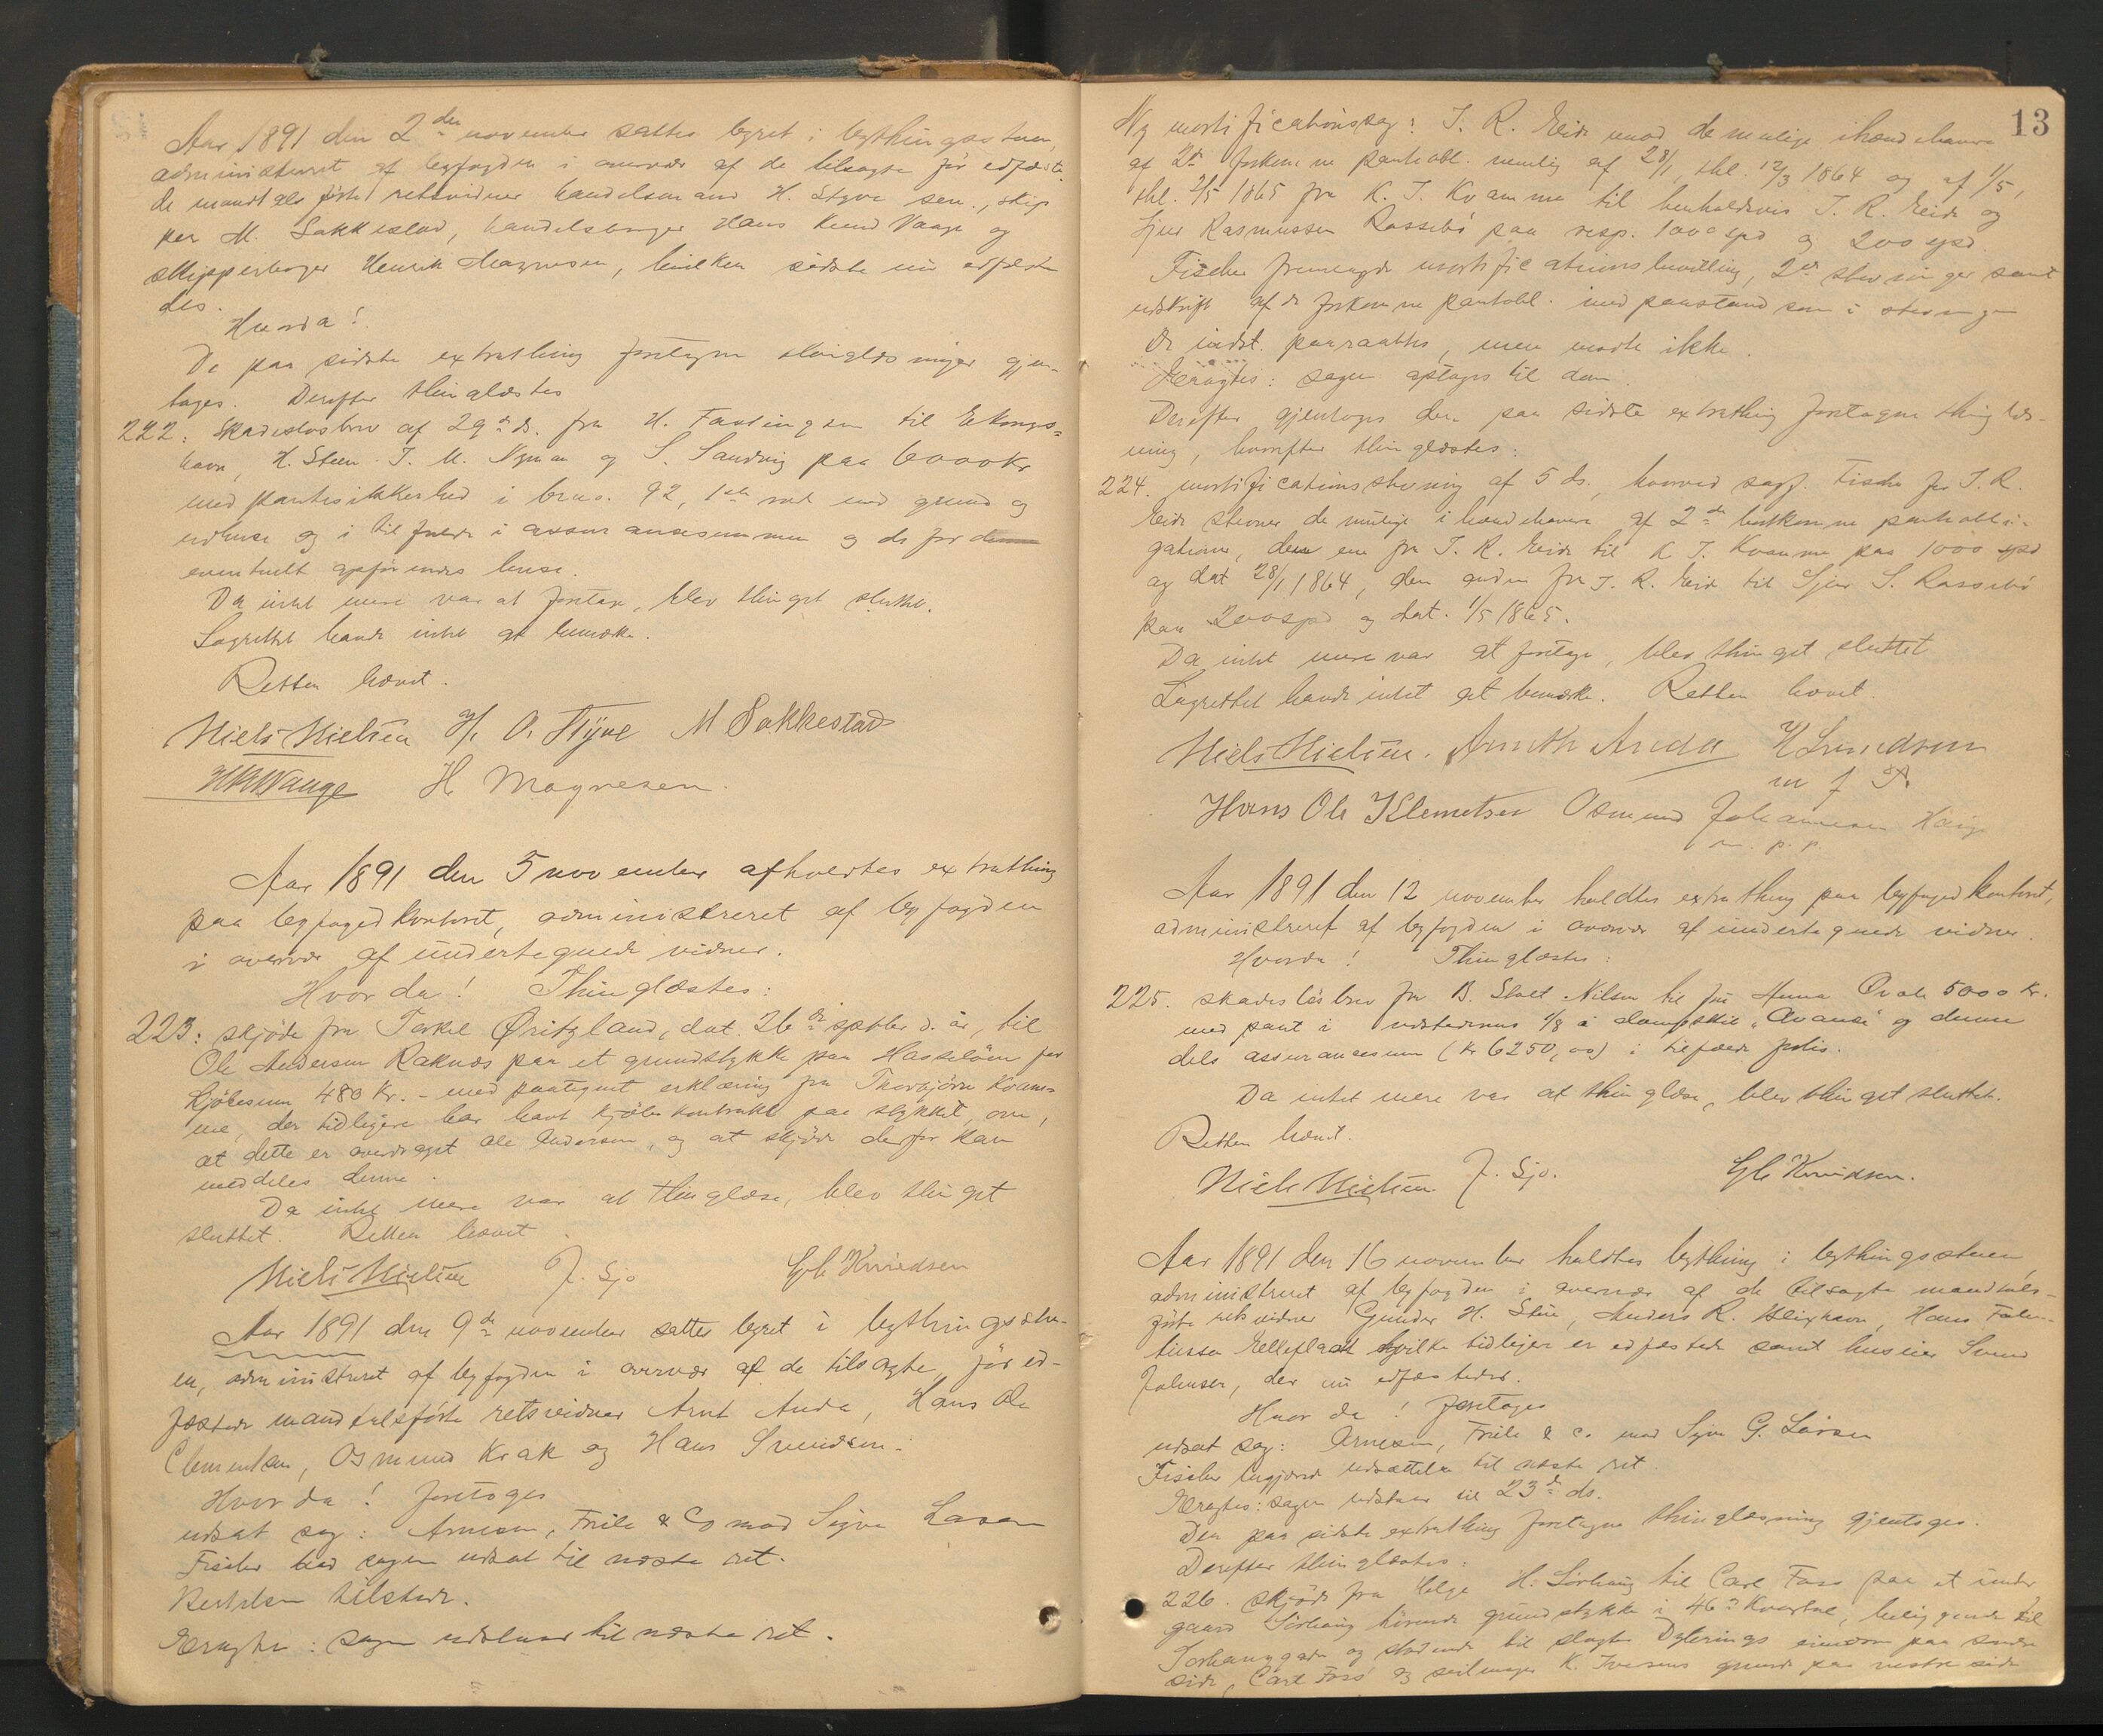 Aar 1891 den 2den november sattes byret i bythingsstuen,
administreret af byfogden i overvær af de tilsagte før edfæste-
de mandtalsførte retsvidner handelsmand H. Styve sen., skip-
per M. Sakkestad, handelsborger Hans Knud Vaage og
skipperborger Henrik Magnesen, hvilken sidste nu edfæste-
des.
Hvorda!
De paa sidste extrathing foretagne thinglæsninger gjen-
toges. Derefter thinglæstes
222: Skadesløsbrev af 29de ds. fra H. Fastingsen til
havn, H. Steen J. M. Nyman og S. Sandvig paa 6000 Kr
med pantesikkerhed i brno. 92, 1ste rode med grund og
udhuse og i tilfælde i assurancesummen og de for
eventuelt opførendes huse.
Da intet mere var at foretage, blev thinget sluttet.
Lagrettet havde intet at bemærke.
Retten hævet.
Niels Nielsen O. Styve M Sakkestad
HKWaage H Magnesen.
Aar 1891 den 5 november afholdtes extrathing
paa byfogedkontoret, administreret af byfogden
i overvær af undertegnede vidner.
Hvorda! Thinglæstes:
223: skjøde fra Torkel Øritzland, dat. 26de septbr d. år, til
Ole Andersen Raknæs paa et grundstykke paa Hasseløen for
kjøbesum 480 Kr. - med paategnet erklæring fra Thorbjørn Kvam-
me, der tidligere har havt kjøbekontrakt paa stykket, om,
at dette er overdraget Ole Andersen, og at skjøde derfor kan
meddeles denne.
Da intet mere var at thinglæse, blev thinget
sluttet. Retten hævet.
Niels Nielsen J. Sjo Gb Knudsen
Aar 1891 den 9de november sattes byret i bythingsstu-
en, administreret af byfogden i overvær af de tilsagte, før ed-
fæstede mandtalsførte retsvidner Arnt Anda, Hans Ole
Clementsen, Osmund Krak og Hans Svendsen.
Hvorda! foretoges
udsat sag: Arnesen, Friele & Co mod Sigva Larsen
Fischer bad sagen udsat til næste ret.
Bertelsen tilstede.
Eragtes: sagen udstaar til næste ret.
13
Ny mortificationssag: J. R. Eide mod de mulige ihændehavere
af 2de forkomne pantobl. nemlig af 28/1, thl. 12/3 1864 og af 1/5,
thl. 2/5 1865 fra K. T. Kvamme til henholdsvis J. R. Eide og
Sjur Rasmussen Rossebø paa resp. 1000 spd og 200 spd.
Fischer fremlagde mortificationsbevilling, 2de stevninger samt
udskrift af de forkomne pantobl. med paastand som i stevningen
De indst. paaraabtes, men mødte ikke.
Eragtes: sagen optages til dom.
Derefter gjentoges den paa sidste extrathing foretagne thinglæs-
ning, hvorefter thinglæstes:
224. mortificationsstevning af 5 ds., hvorved sagf. Fischer for J. R.
Eide stevner de mulige ihændehavere af 2de bortkomne pantobli-
gationer, den ene fra J. R. Eide til K T. Kvamme paa 1000 spd
og dat 28/1 1864, den anden fra J. R. Eide til Sjur S. Rossebø
paa 200 spd og dat. 1/5 1865.
Da intet mere var at foretage, blev thinget sluttet
Lagrettet havde intet at bemærke. Retten hævet.
Niels Nielsen. Arnth Anda H Svendsen
m f P.
Hans Ole Klemetsen Osmund Johannesen
m. p. p.
Aar 1891 den 12 november holdtes extrathing paa byfogedkontoret,
administreret af byfogden i overvær af undertegnede vidner.
Hvorda! Thinglæstes:
225. skadesløsbrev fra B. Stolt Nilsen til frk Anna Qvale 5000 Kr.
med pant i udstederens 1/8 i dampskib "Avance" og denne
dels assurancesum (Kr 6250,00) i tilfælde polis.
Da intet mere var at thinglæse, blev thinget sluttet.
Retten hævet.
Niels Nielsen. J. Sjo. Gb Knudsen.
Aar 1891 den 16 november holdtes bything i bythingsstuen,
administreret af byfogden i overvær af de tilsagte mandtals-
førte retsvidner Gunder H. Stue, Anders R. Bleivhavn, Hans Falen-
tinsen Elleflaadt hvilke tidligere er edfæstede samt huseier Svend
Johnsen, der nu edfæstedes.
Hvor da! foretoges
udsat sag: Arnesen, Friele & Co mod Sigva G. Larsen
Fischer begjærede udsættelse til næste ret.
Eragtes: sagen udstaar til 23de ds.
Den paa sidste extrathing foretagne thinglæsning gjentoges.
Derefter thinglæstes:
226. skjøde fra Helge H. Sørhaug til Carl Foss paa et under
gaard Sørhaug hørende grundstykke i 46de Kvartal, beliggende til
Sørhauggaden og stødende til slagter Dyterings eiendom paa søndre
side, Carl Foss' og seilmager K. Iversens grunde paa vestre side